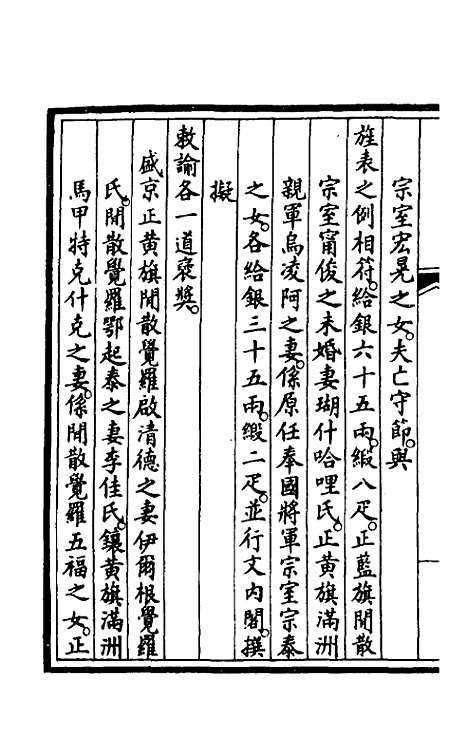 宗室宏晃之女。夫亡守節。與
旌表之例相符。給銀六十五兩。緞八疋。正藍旗閒散
宗室甯俊之未婚妻瑚什哈哩氏。正黃旗滿洲
親軍烏凌阿之妻。係原任奉國將軍宗室宗泰
之女。各給銀三十五兩。緞二疋。並行文內閣。撰
擬
敕諭各一道褒獎。
盛京正黃旗閒散覺羅啟清德之妻伊爾根覺羅
氏。閒散覺羅鄂起泰之妻李佳氏。鑲黃旗滿洲
馬甲特克什克之妻。係閒散覺羅五福之女。正